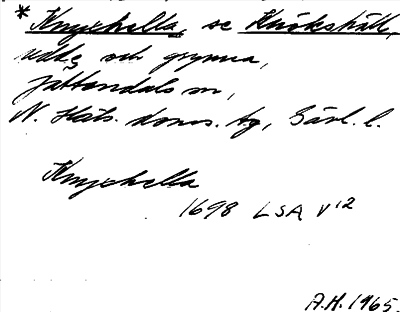 * Knychella, se Knöckshäll,
udde och grynna,
Jättendals sn,
N. Häls. doms. tg, Gävl. l.
Knychella
1698 LSA V¹²
A.H. 1965.